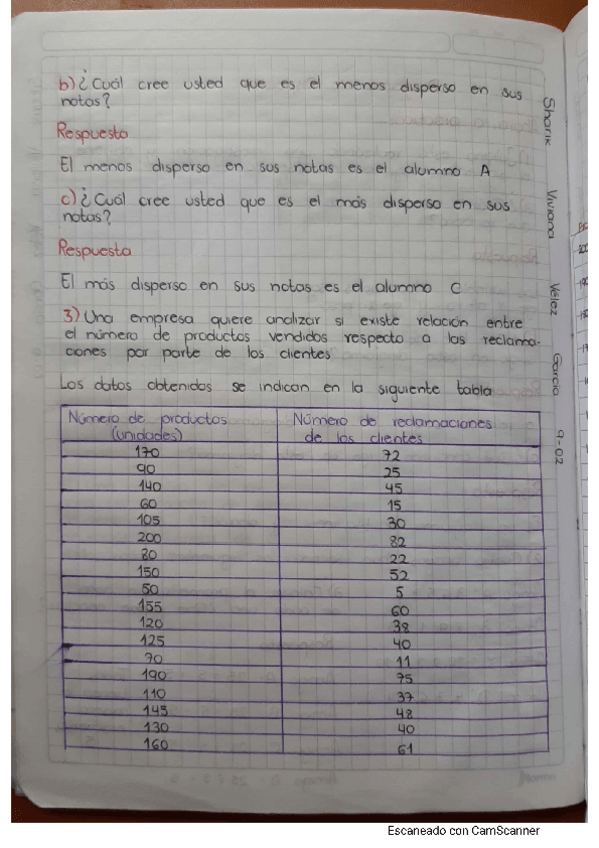 b) ¿Cuál cree usted que es el menos disperso en sus
notas?
Respuesta
El menos disperso en sus notas es el alumno A
c) ¿Cuál cree usted que es el más disperso en sus
notas?
Respuesta
El más disperso en sus notas es el alumno C
3) Una empresa quiere analizar si existe relación entre
el número de productos vendidos respecto a las reclama-
ciones por parte de los clientes
Los datos obtenidos se indican en la siguiente tabla
Número de productos (unidades) Número de reclamaciones de los clientes
170 72
90 25
140 45
60 15
105 30
200 82
80 22
150 52
50 5
155 60
120 38
125 40
70 11
190 75
110 37
145 48
130 40
160 61
Sharik Viviana Vélez Garcia 9-02
norma
Escaneado con CamScanner